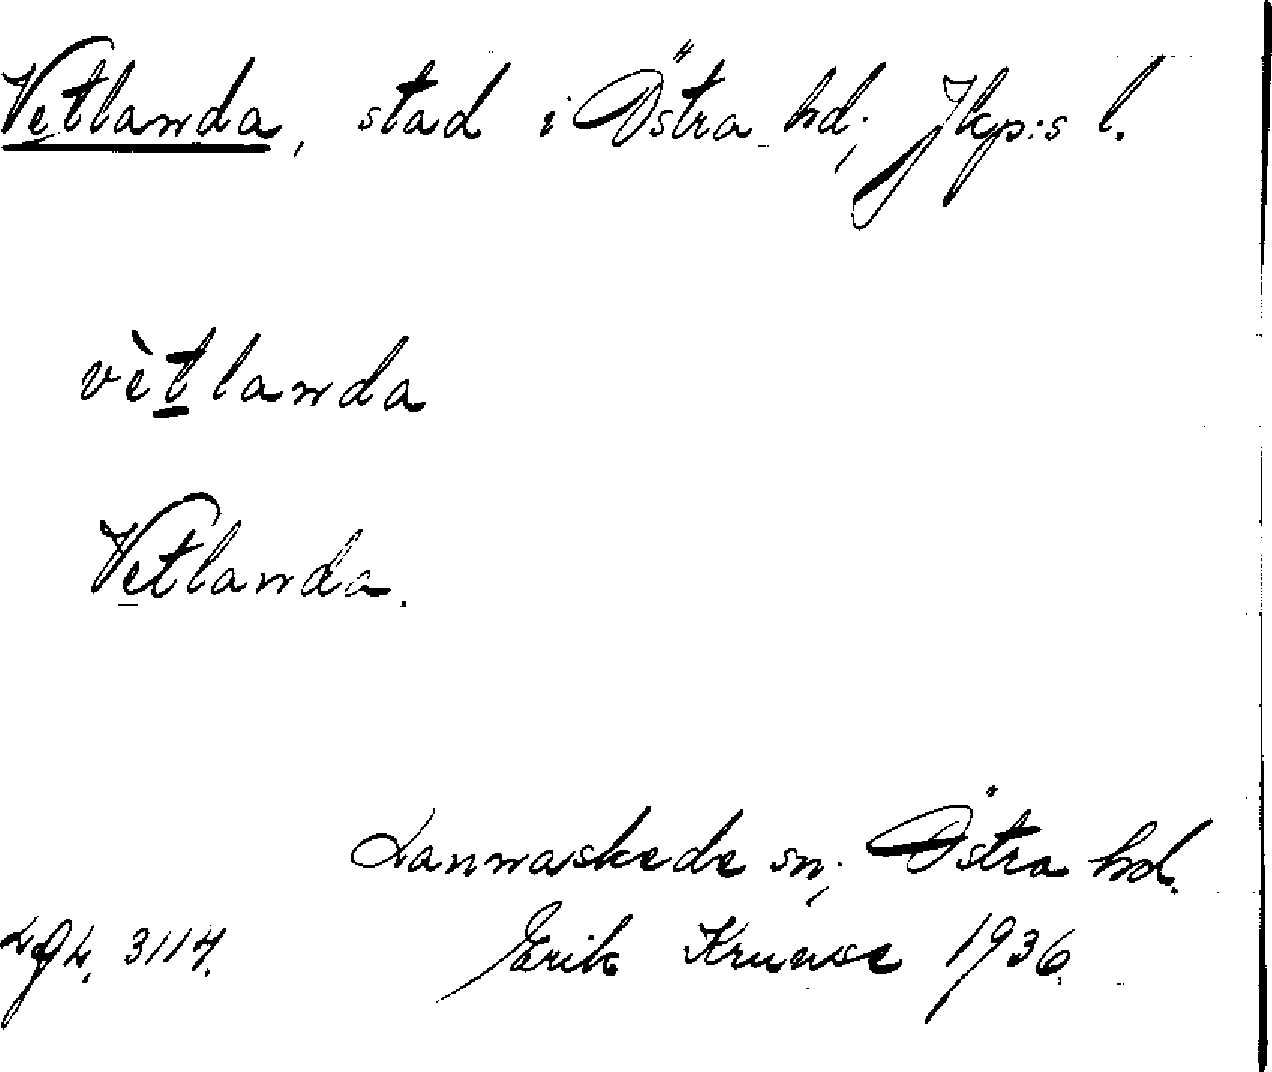 Vetlanda, stad i Östra hd; Jkp:s l.
vètlanda
Vetlanda.
Lannaskede sn; Östra hd.
Erik Kruuse 1936.
3114.